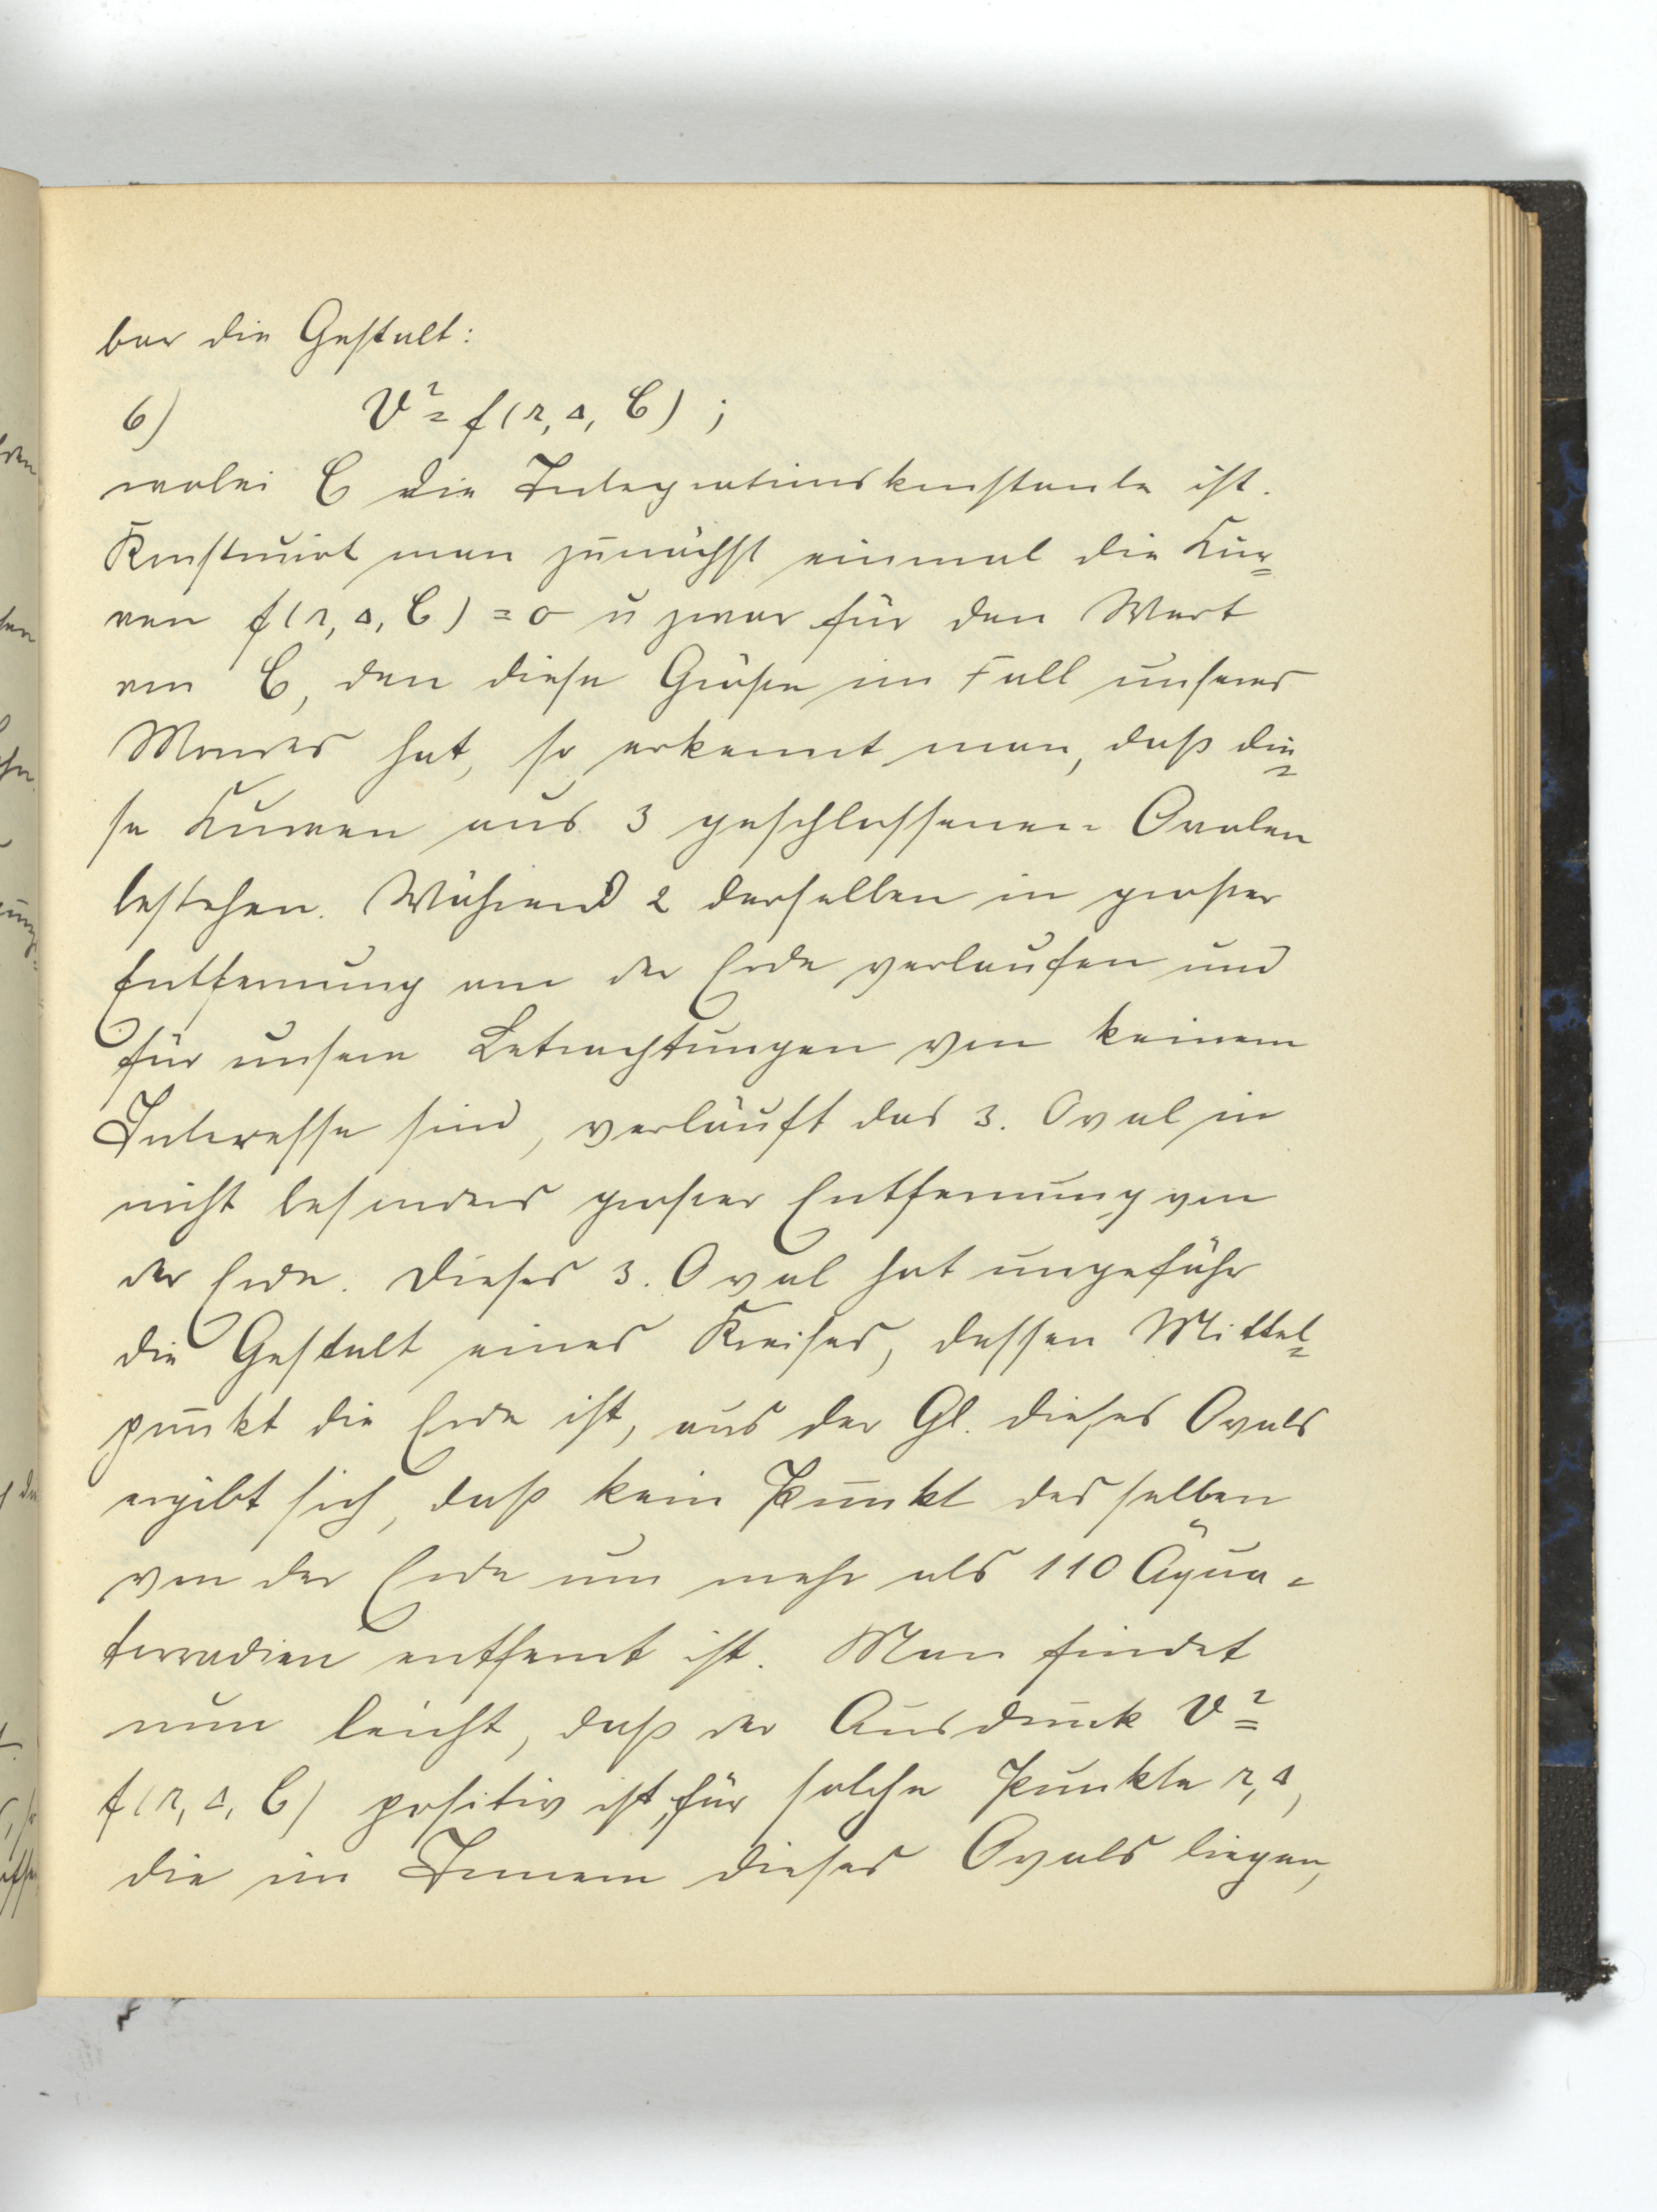 bar die Gestalt:
6) V² = f(r, Δ, C) ;
wobei C die Integrationskonstante ist.
Konstruirt man zunächst einmal die Kur=
ven f(r, Δ, C) = 0 u zwar für den Wert
von C, den diese Größe im Fall unseres
Mondes hat, so erkennt man, daß die=
se Kurven aus 3 geschlossenen Ovalen
bestehen. Während 2 derselben in großer
Entfernung von der Erde verlaufen und
für unsere Betrachtungen von keinem
Interesse sind, verläuft das 3. Oval in
nicht besonders großer Entfernung von
der Erde. Dieses 3. Oval hat ungefähr
die Gestalt eines Kreises, dessen Mittel=
punkt die Erde ist, aus der Gl. dieses Ovals
ergibt sich, daß kein Punkt desselben
von der Erde um mehr als 110 Äqua=
torradien entfernt ist. Man findet
nun leicht, daß der Ausdruck V² =
f(r, Δ, C) positiv ist, für solche Punkte r, Δ,
die im Innern dieses Ovals liegen,